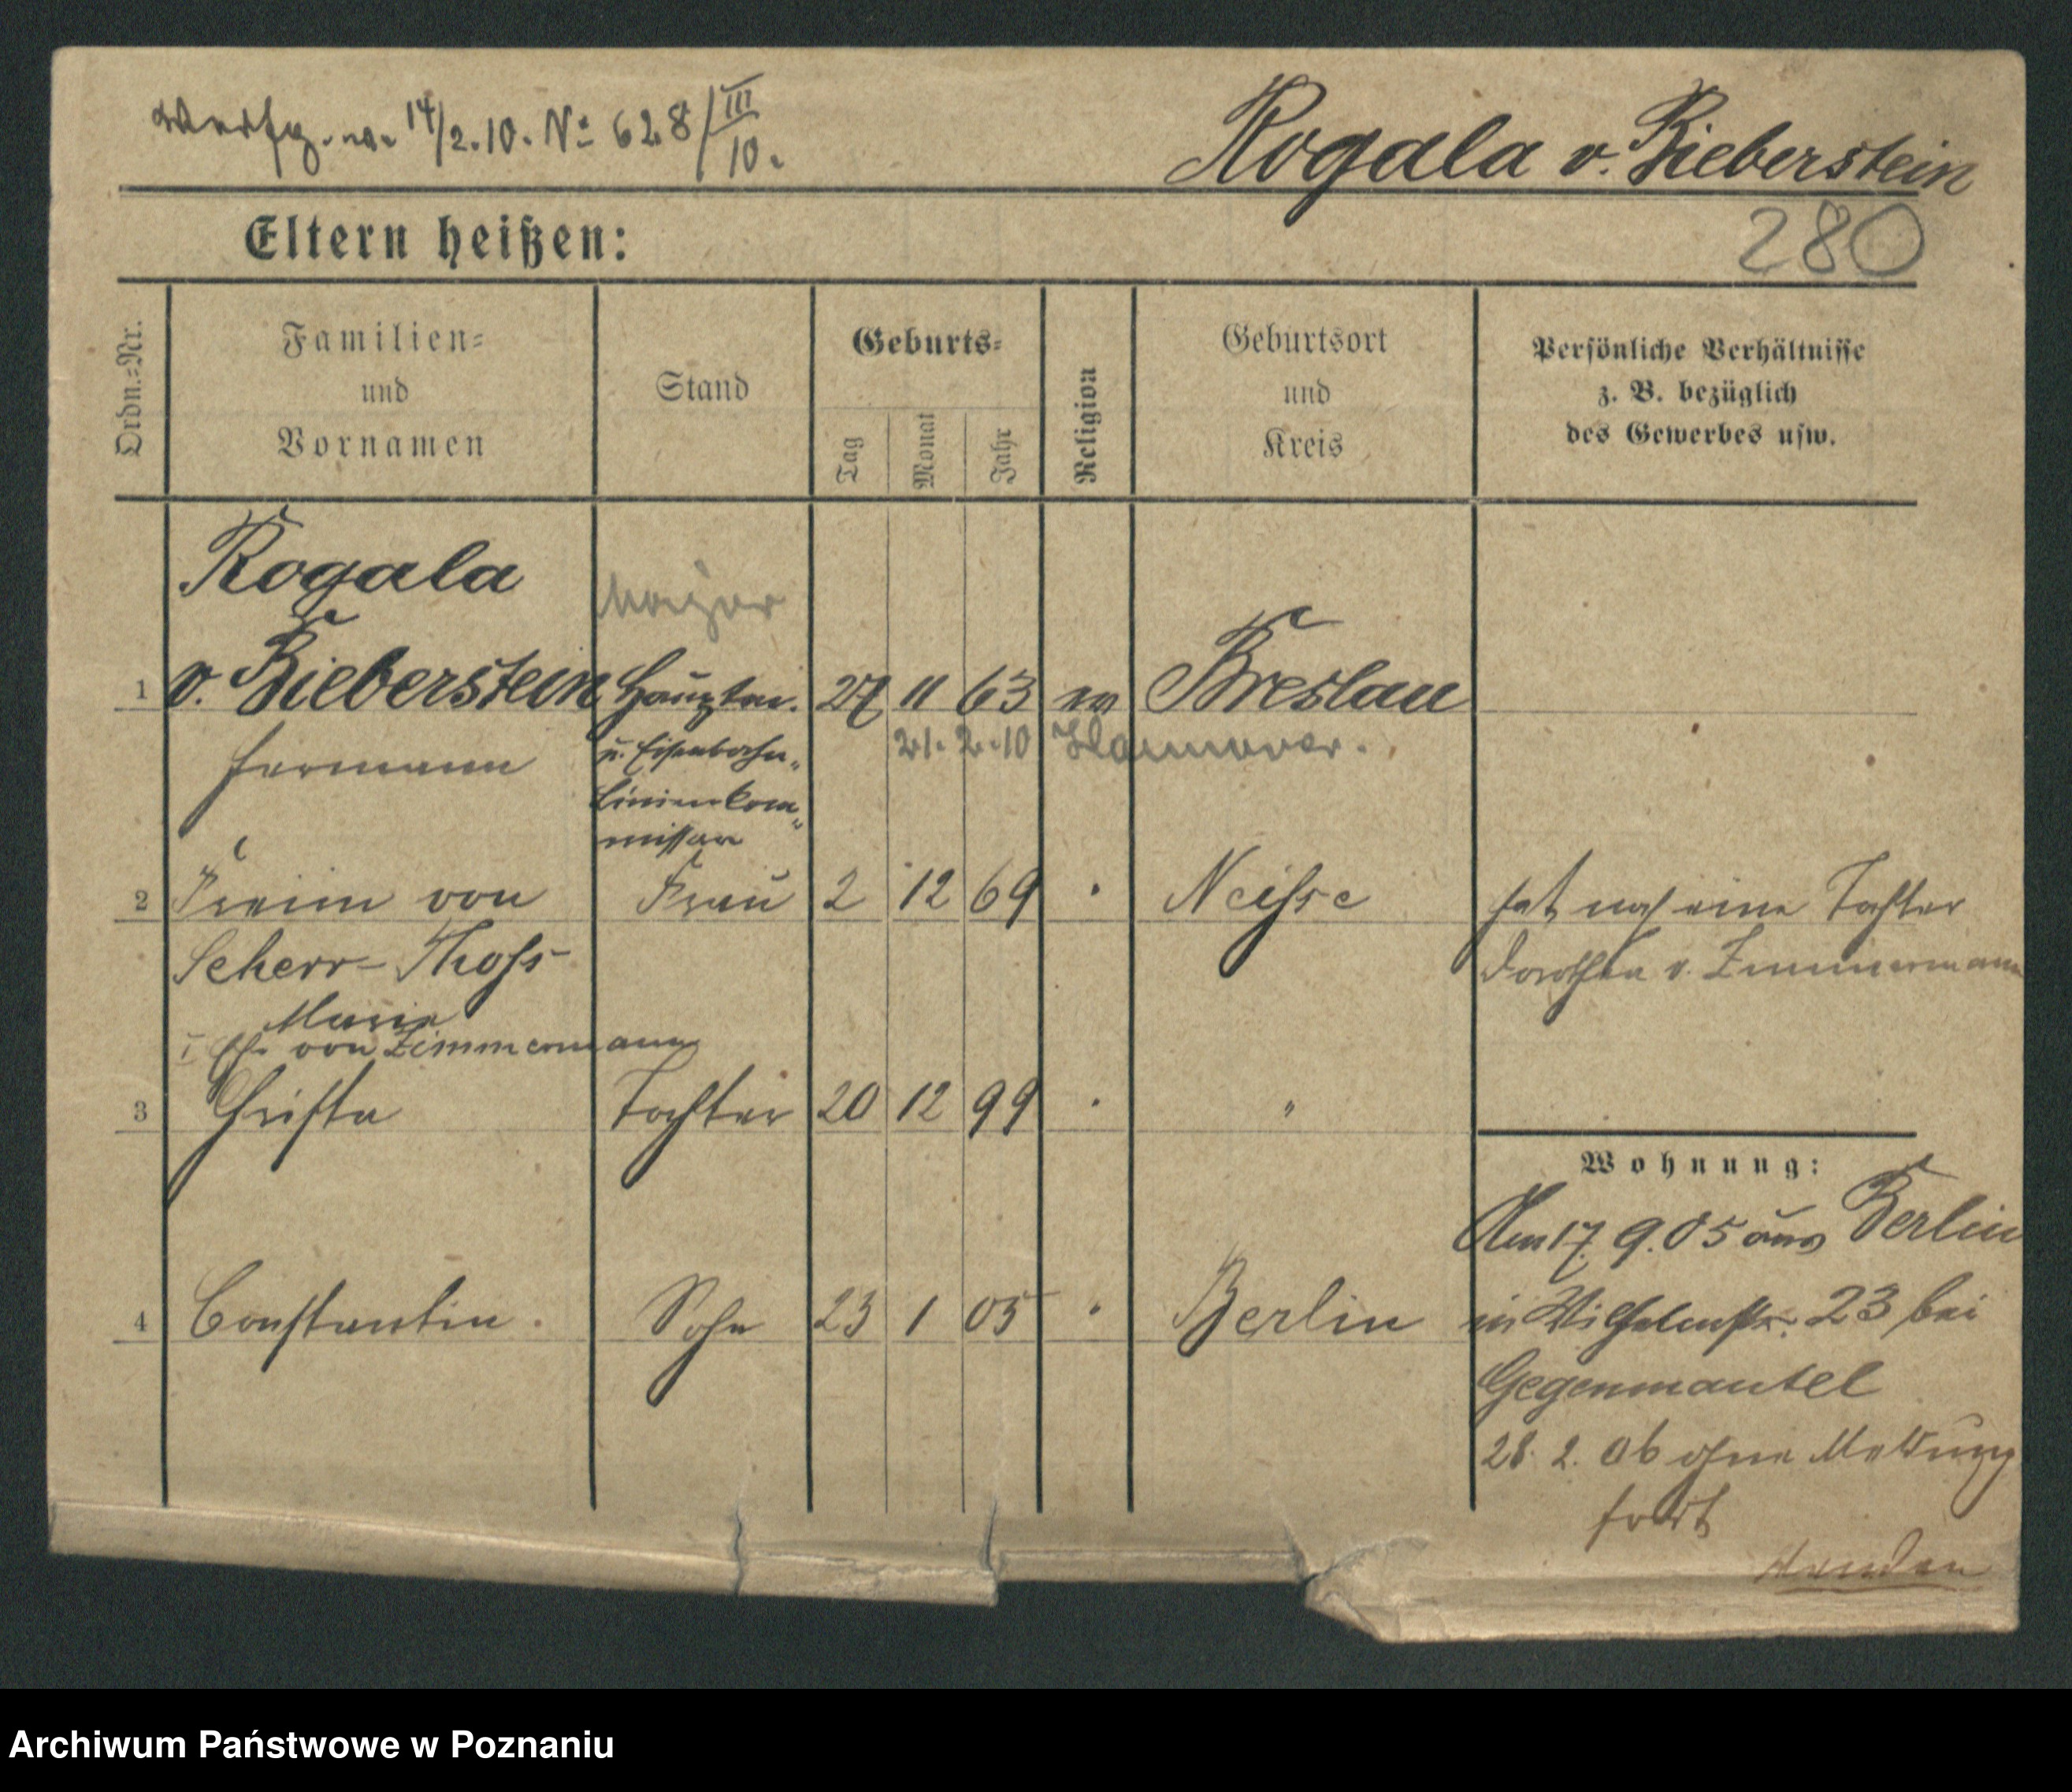 v. 14/2.10. No 628/III 10.
Rogala v. Bieberstein
Eltern heißen:
280
Ordn.=Nr.
Familien=
und
Vornamen
Stand
Geburts=
Tag
Monat
Jahr
Religion
Geburtsort
und
Kreis
Persönliche Verhältnisse
z. B. bezüglich
des Gewerbes usw.
Rogala
Major
1 v. Bieberstein Hauptm. 27 11 63 ev Breslau
Hermann u. Eisenbahn- 21. 2. 10 Hannover.
Linienkom-
missar
2 Freiin von Frau 2 12 69 " Neisse hat noch eine Tochter
Scherr-Thoss Dorothea v. Zimmermann
Marie
I Eh. von Zimmermann
3 Christa Tochter 20 12 99 " "
Wohnung:
Am 17. 9. 05 aus Berlin
4 Constantin. Sohn 23 1 05 " Berlin in Wilhelmstr. 23 bei
Gegenmantel
28. 2. 06 ohne Meldung
fort
Archiwum Państwowe w Poznaniu